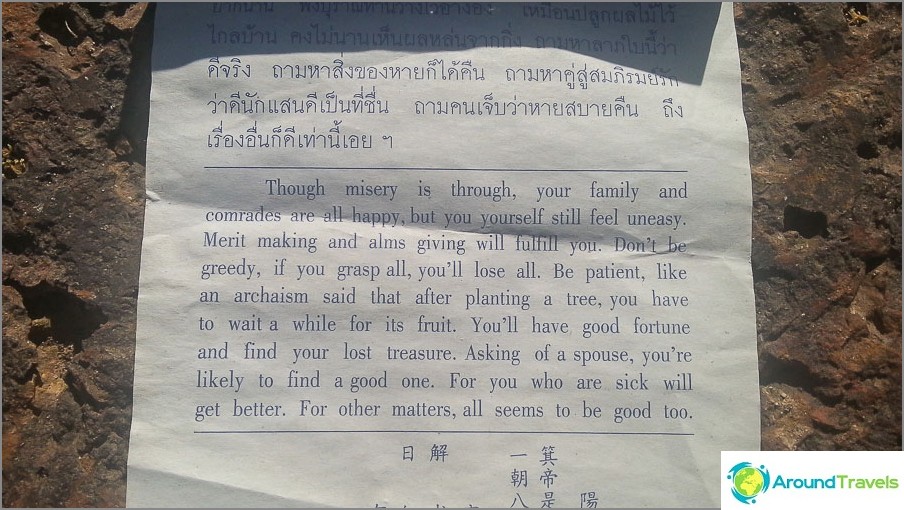 ไกลบ้าน คงไม่นานเห็นผลหล่นจากกิ่ง ถามหาลาภใบนี้ว่า
ดีจริง ถามหาสิ่งของหายก็ได้คืน ถามหาคู่สู่สมภิรมย์รัก
ว่าดีนักแสนดีเป็นที่ชื่น ถามคนเจ็บว่าหายสบายคืน ถึง
เรื่องอื่นก็ดีเท่านี้เอย ฯ
Though misery is through, your family and
comrades are all happy, but you yourself still feel uneasy.
Merit making and alms giving will fulfill you. Don't be
greedy, if you grasp all, you'll lose all. Be patient, like
an archaism said that after planting a tree, you have
to wait a while for its fruit. You'll have good fortune
and find your lost treasure. Asking of a spouse, you're
likely to find a good one. For you who are sick will
get better. For other matters, all seems to be good too.
日解 一 箕
朝 帝
八 是 陽
AroundTravels